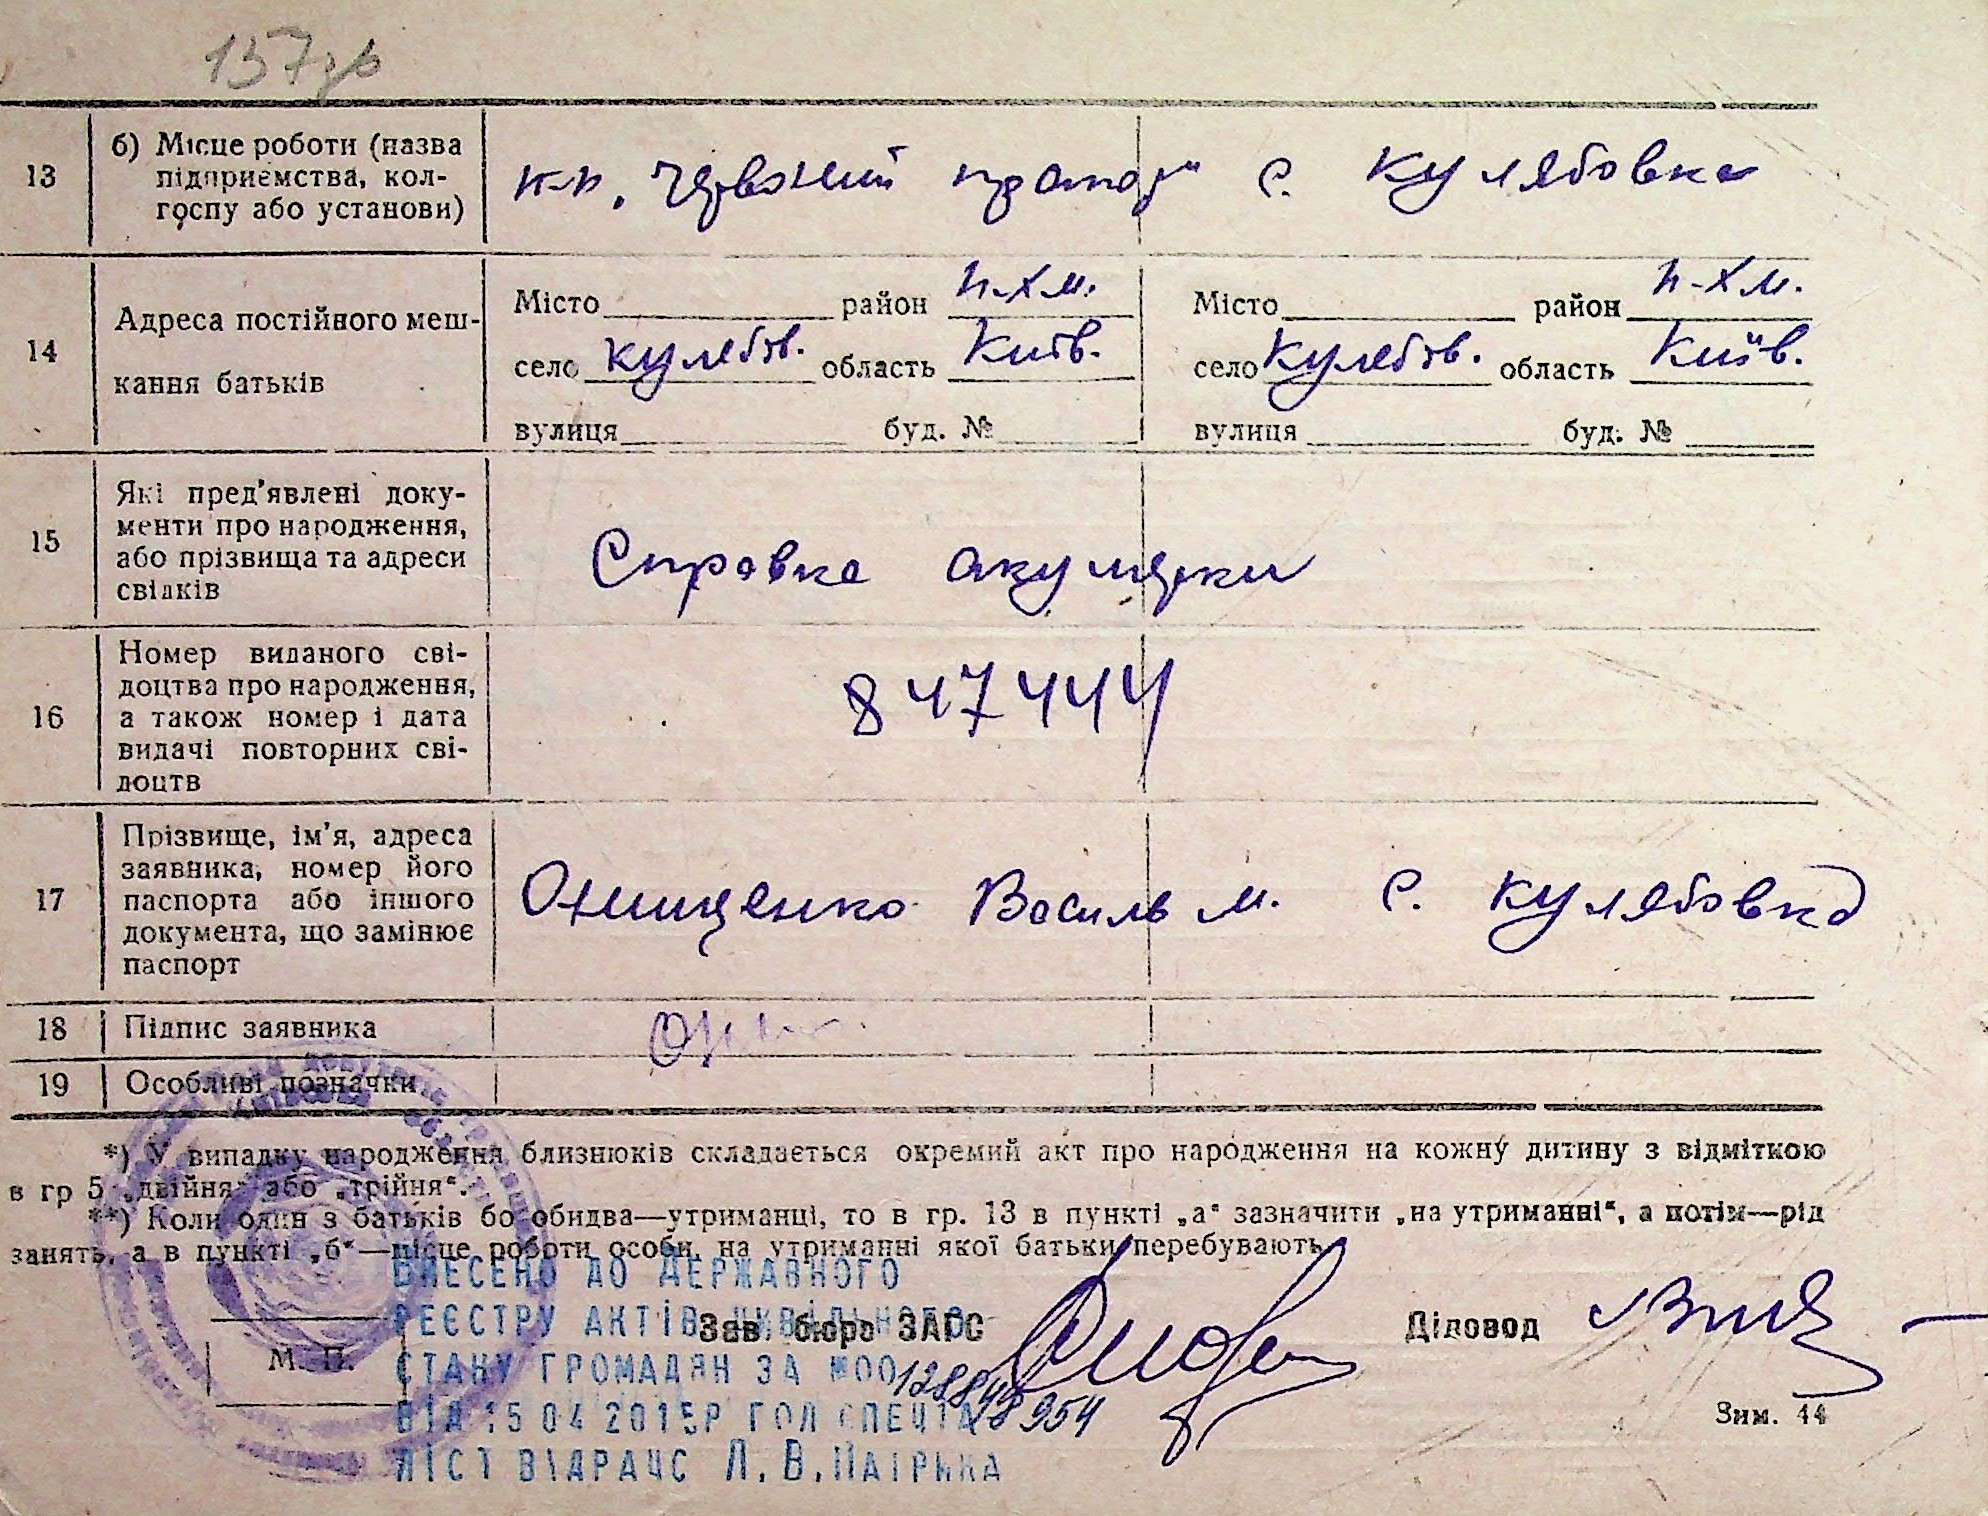 137зв
13 б) Місце роботи (назва
підприємства, кол-
госпу або установи)
к-п, Червоний прапор" с. Кулябовка
14 Адреса постійного меш-
кання батьків
Місто район п-хм. Місто район п-хм.
село Кулябов. область Київ. село Кулябов. область Київ.
вулиця буд. № вулиця буд. №
15 Які пред'явлені доку-
менти про народження,
або прізвища та адреси
свідків
Справка акушерки
16 Номер виданого сві-
доцтва про народження,
а також номер і дата
видачі повторних сві-
доцтв
847444
17 Прізвище, ім'я, адреса
заявника, номер його
паспорта або іншого
документа, що замінює
паспорт
Онищенко Василь м. с. Кулябовка
18 Підпис заявника
19 Особливі позначки
*) У випадку народження близнюків складається окремий акт про народження на кожну дитину з відміткою
в гр 5 „двійня“ або „трійня“.
**) Коли один з батьків бо обидва—утриманці, то в гр. 13 в пункті „а“ зазначити „на утриманні“, а потім—рід
занять, а в пункті „б“—місце роботи особи, на утриманні якої батьки перебувають
ВНЕСЕНО ДО ДЕРЖАВНОГО
РЕЄСТРУ АКТІВ ЦИВІЛЬНОГО
Зав. бюро ЗАГС Діловод
М. П.
СТАНУ ГРОМАДЯН ЗА №00
ВІД 15 04 2015Р ГОЛ СПЕЦІА
Зим. 44
ЛІСТ ВІДРАЦС Л.В.